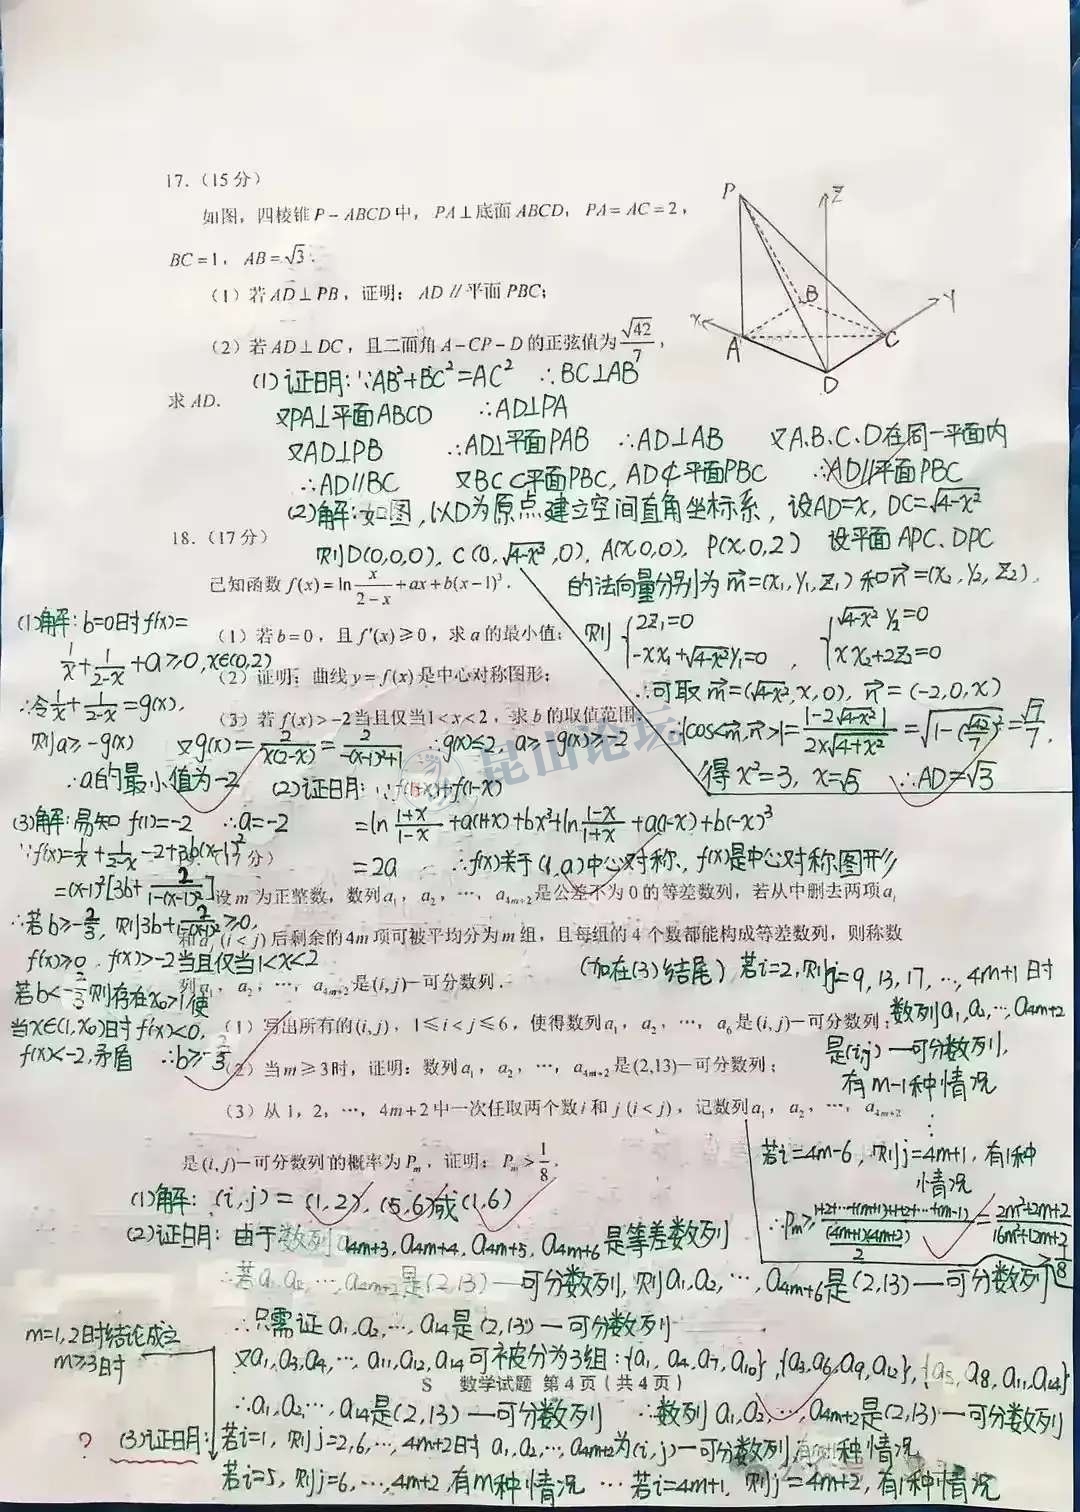 17.（15分）
如图，四棱锥P-ABCD中，PA⊥底面ABCD，PA=AC=2，
BC=1，AB=√3.
（1）若AD⊥PB，证明：AD∥平面PBC；
（2）若AD⊥DC，且二面角A-CP-D的正弦值为√42/7，
求AD.
P
Z
B
Y
x
A
C
D
(1)证明:∵AB²+BC²=AC² ∴BC⊥AB
又PA⊥平面ABCD ∴AD⊥PA
又AD⊥PB ∴AD⊥平面PAB ∴AD⊥AB 又A.B.C.D在同一平面内
∴AD//BC 又BC⊂平面PBC, AD⊄平面PBC ∴AD//平面PBC
(2)解:如图,以D为原点建立空间直角坐标系,设AD=x, DC=√4-x²
则D(0,0,0), C(0,√4-x²,0), A(x,0,0), P(x,0,2) 设平面APC、DPC
的法向量分别为m=(x₁,y₁,z₁)和n=(x₂,y₂,z₂),
则{2z₁=0 -xx₁+√4-x²y₁=0 , {√4-x²y₂=0 xx₂+2z₂=0
∴可取m=(√4-x²,x,0), n=(-2,0,x)
∴|cos<m,n>|=|-2√4-x²|/2×√4+x²=√1-(√42/7)²=√7/7,
得x²=3, x=√3 ∴AD=√3
18.（17分）
已知函数f(x)=ln x/2-x+ax+b(x-1)³.
（1）若b=0，且f′(x)≥0，求a的最小值；
（2）证明：曲线y=f(x)是中心对称图形；
（3）若f(x)>-2当且仅当1<x<2，求b的取值范围.
(1)解:b=0时f′(x)=
1/x+1/2-x+a≥0,x∈(0,2)
∴令1/x+1/2-x=g(x),
则a≥-g(x) 又g(x)=2/x(2-x)=2/-(x-1)²+1 ∴g(x)≤2, a≥-g(x)≥-2
∴a的最小值为-2
(2)证明:∵f(1+x)+f(1-x)
=ln 1+x/1-x+a(1+x)+bx³+ln 1-x/1+x+a(1-x)+b(-x)³
=2a ∴f(x)关于(1,a)中心对称、f(x)是中心对称图形
(3)解:易知f(1)=-2 ∴a=-2
∵f′(x)=1/x+1/2-x-2+3b(x-1)²
=(x-1)²[3b+2/1-(x-1)²]
∴若b≥-2/3,则3b+2/1-(x-1)²≥0,
f′(x)≥0 f(x)>-2当且仅当1<x<2
若b<-2/3则存在x₀>1使
当x∈(1,x₀)时f′(x)<0,
f(x)<-2,矛盾 ∴b≥-2/3
分）
设m为正整数，数列a₁，a₂，…，a₄ₘ₊₂是公差不为0的等差数列，若从中删去两项aᵢ
和aⱼ(i<j)后剩余的4m项可被平均分为m组，且每组的4个数都能构成等差数列，则称数
列a₁，a₂，…，a₄ₘ₊₂是(i,j)-可分数列.
（1）写出所有的(i,j)，1≤i<j≤6，使得数列a₁，a₂，…，a₆是(i,j)-可分数列；
（2）当m≥3时，证明：数列a₁，a₂，…，a₄ₘ₊₂是(2,13)-可分数列；
（3）从1，2，…，4m+2中一次任取两个数i和j(i<j)，记数列a₁，a₂，…，a₄ₘ₊₂
是(i,j)-可分数列的概率为Pₘ，证明：Pₘ>1/8.
(加在(3)结尾) 若i=2,则j=9,13,17,…,4m+1时
数列a₁,a₂,…,a₄ₘ₊₂
是(i,j)—可分数列,
有m-1种情况
⋮
若i=4m-6,则j=4m+1,有1种
情况
∴Pₘ≥1+2+…+(m+1)+1+2+…+(m-1)/(4m+1)(4m+2)/2=2m²+2m+2/16m²+12m+2>1/8
(1)解: (i,j)=(1,2),(5,6)或(1,6)
(2)证明:由于数列a₄ₘ₊₃,a₄ₘ₊₄,a₄ₘ₊₅,a₄ₘ₊₆是等差数列
∴若a₁,a₂,…,a₄ₘ₊₂是(2,13)—可分数列,则a₁,a₂,…,a₄ₘ₊₆是(2,13)—可分数列
∴只需证a₁,a₂,…,a₁₄是(2,13)—可分数列
又a₁,a₃,a₄,…,a₁₁,a₁₂,a₁₄可被分为3组:{a₁,a₄,a₇,a₁₀},{a₃,a₆,a₉,a₁₂},{a₅,a₈,a₁₁,a₁₄}
S 数学试题 第4页（共4页）
∴a₁,a₂,…,a₁₄是(2,13)—可分数列 ∴数列a₁,a₂,…,a₄ₘ₊₂是(2,13)—可分数列
m=1,2时结论成立
m≥3时
?
(3)证明:若i=1,则j=2,6,…,4m+2时a₁,a₂,…,a₄ₘ₊₂为(i,j)—可分数列,有m+1种情况
若i=5,则j=6,…,4m+2,有m种情况…若i=4m+1,则j=4m+2,有1种情况
昆山论坛